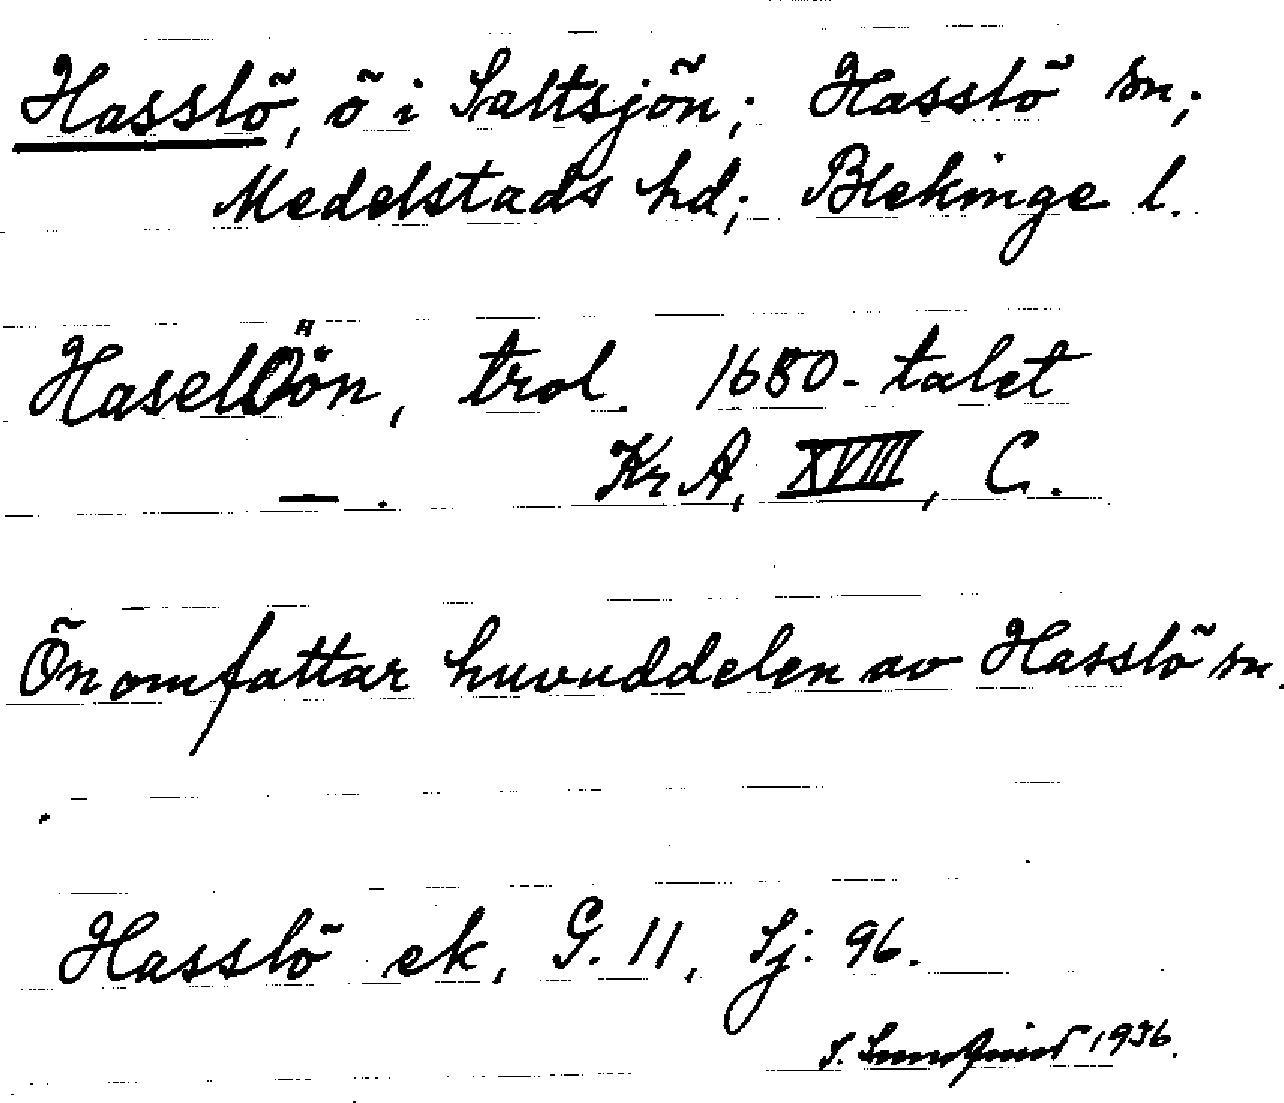 Hasslö, ö i Saltsjön; Hasslö sn;
Medelstads hd; Blekinge l.
Hasel Öön, trol. 1680-talet
— . Kr A, XVIII, C.
Ön omfattar huvuddelen av Hasslö sn.
Hasslö ek. G. 11. Sj: 96.
S. 1936.